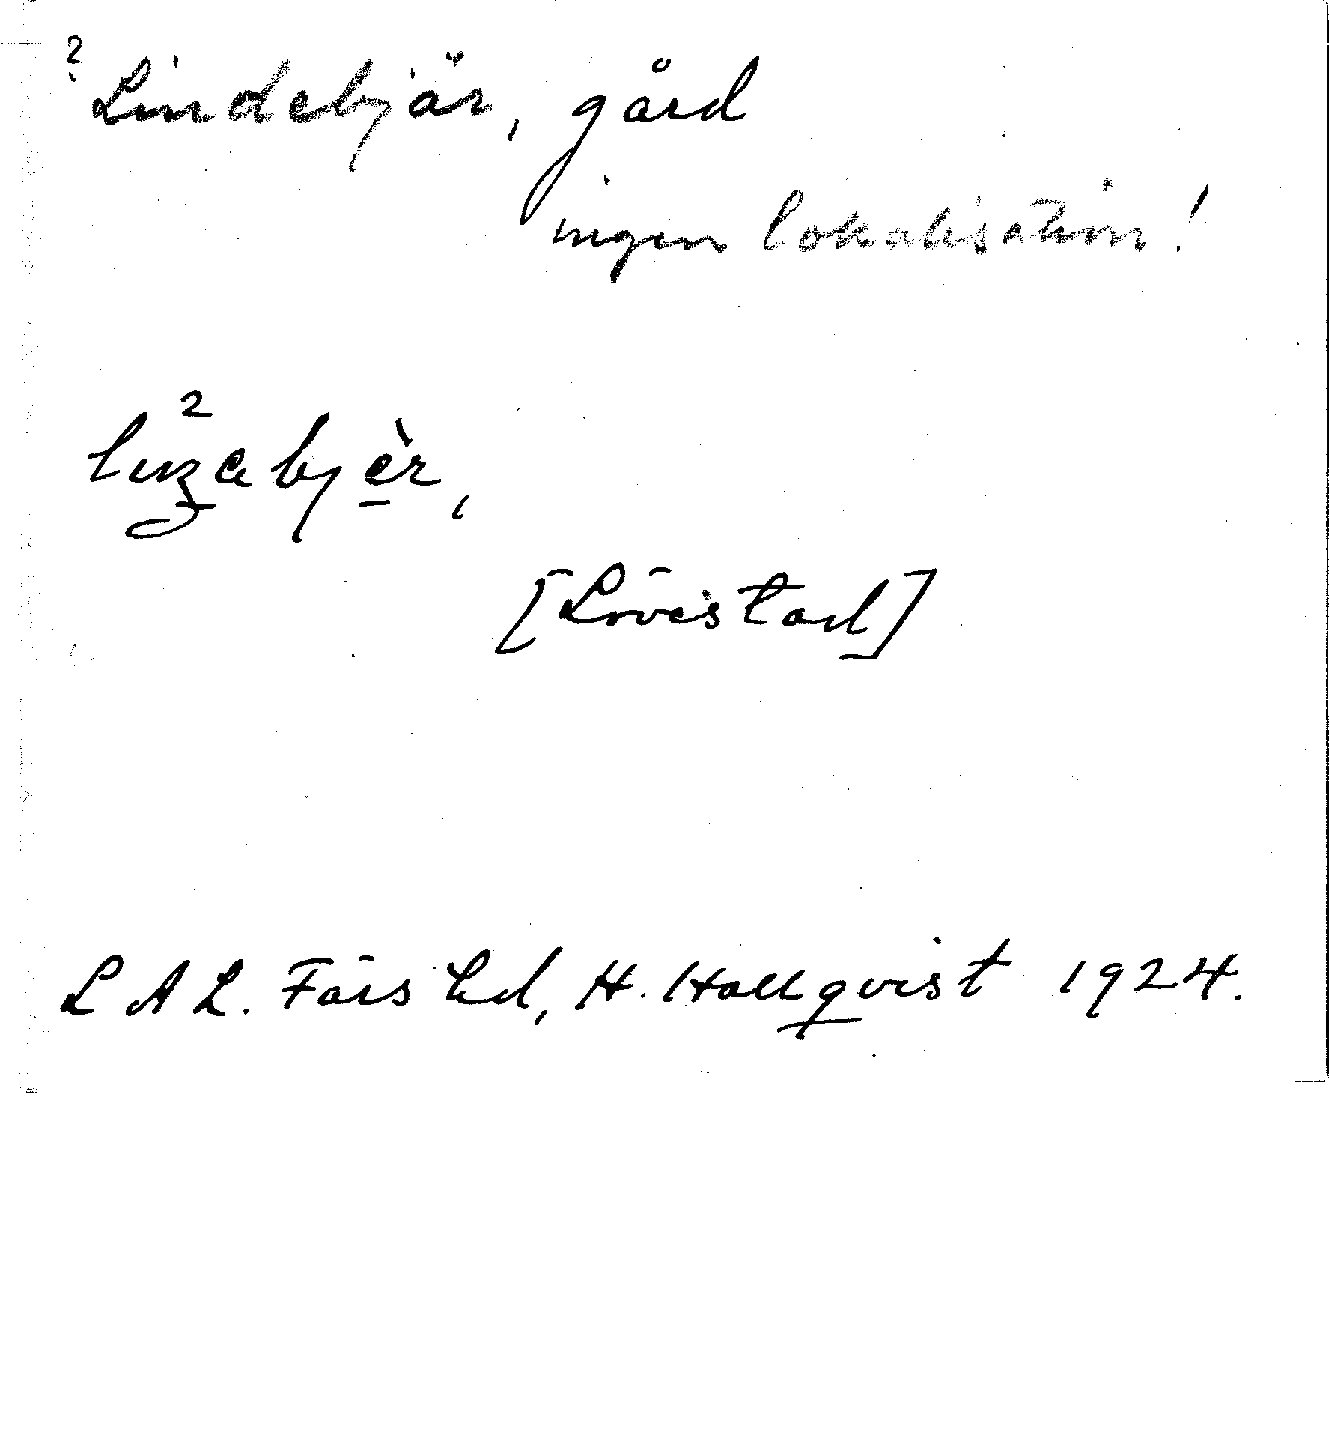 ? Lindebjär, gård
ingen lokalisation!
[Lövestad]
LAL. Färs hd, H. Hallqvist 1924.